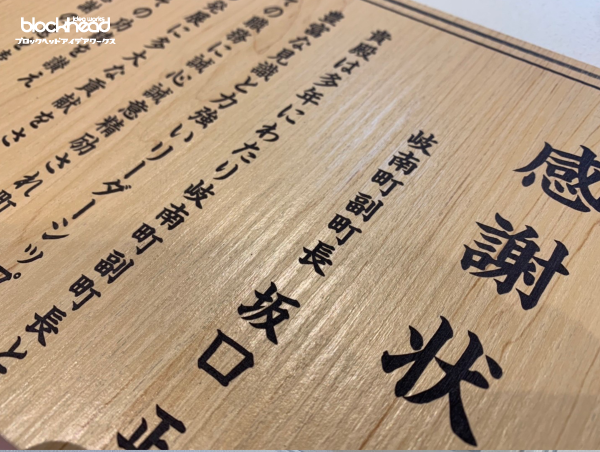 idea works
blockhead
ブロックヘッドアイデアワークス
感謝状
岐南町副町長
坂口 正
貴殿は多年にわたり岐南町副町長と
豊富な見識と力強いリーダーシップ
その職務に誠心誠意精励され町
発展に多大な貢献をさ